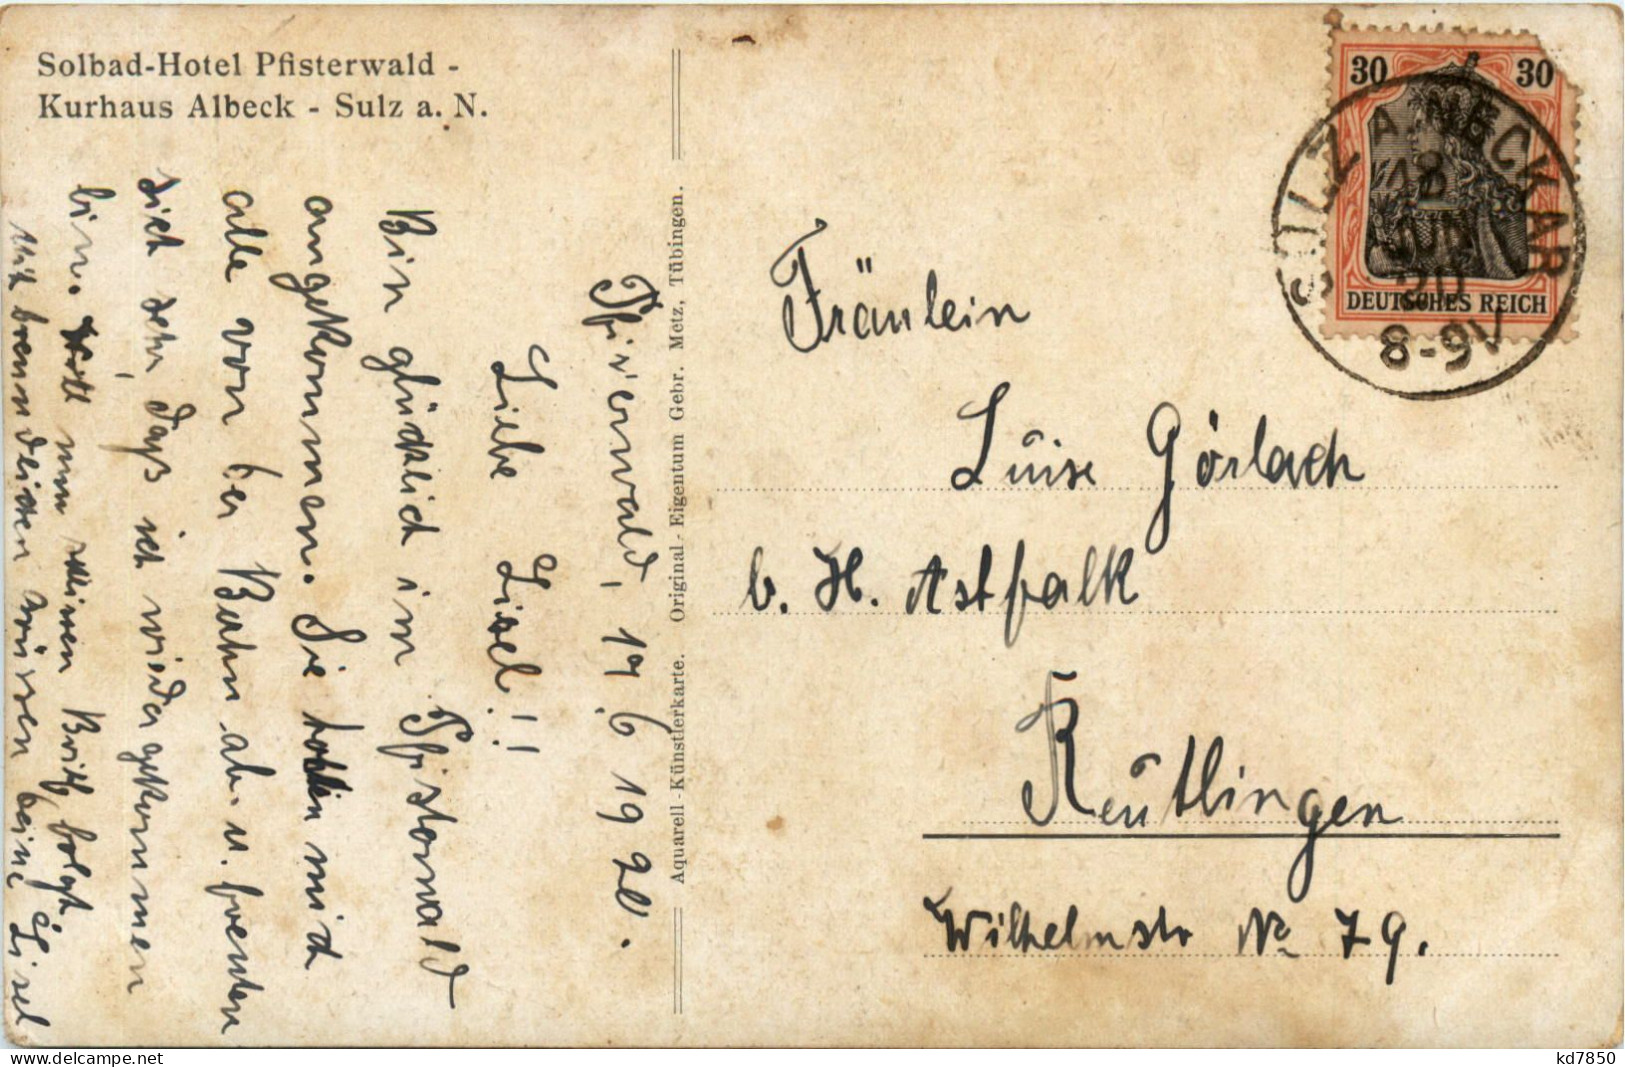 Solbad-Hotel Pfisterwald -
Kurhaus Albeck - Sulz a. N.
Pfisterwald, 17.6.1920.
Liebe Lisel!!
Bin glücklich im Pfisterwald
angekommen. Sie holten mich
alle von der Bahn ab. u. freuten
sich sehr, daß ich wieder gekommen
bin. nun kleinen Brief folgt.
Mit Grüßen deine Lisel
Aquarell-Künstlerkarte. Original-Eigentum Gebr. Metz, Tübingen.
30 30
DEUTSCHES REICH
SULZ A. NECKAR
18
JUN
20
8-9V
Fräulein
Luise Görlach
b. H. Astfalk
Reutlingen
Wilhelmstr No 79.
kd7850